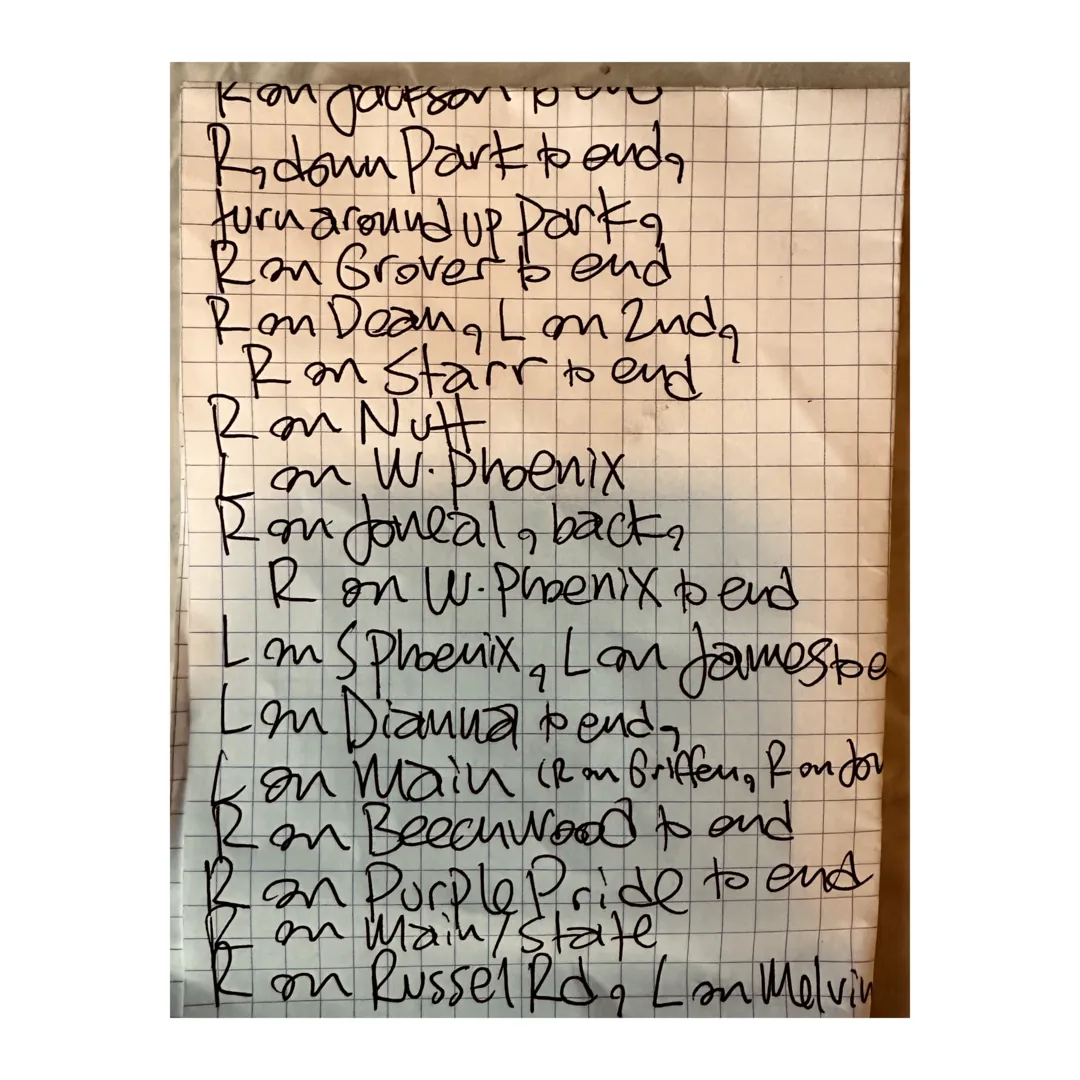 R on Jackson to end
R, down Park to end,
turn around up Park,
R on Grover to end
R on Dean, L on 2nd,
R on Starr to end
R on Nutt
L on W. Phoenix
R on Joneal, back,
R on W. Phoenix to end
L on S Phoenix, L on James to e
L on Dianna to end,
L on Main (R on Griffen, R on Jon
R on Beechwood to end
R on Purple Pride to end
R on Main/State
R on Russel Rd, L on Melvin